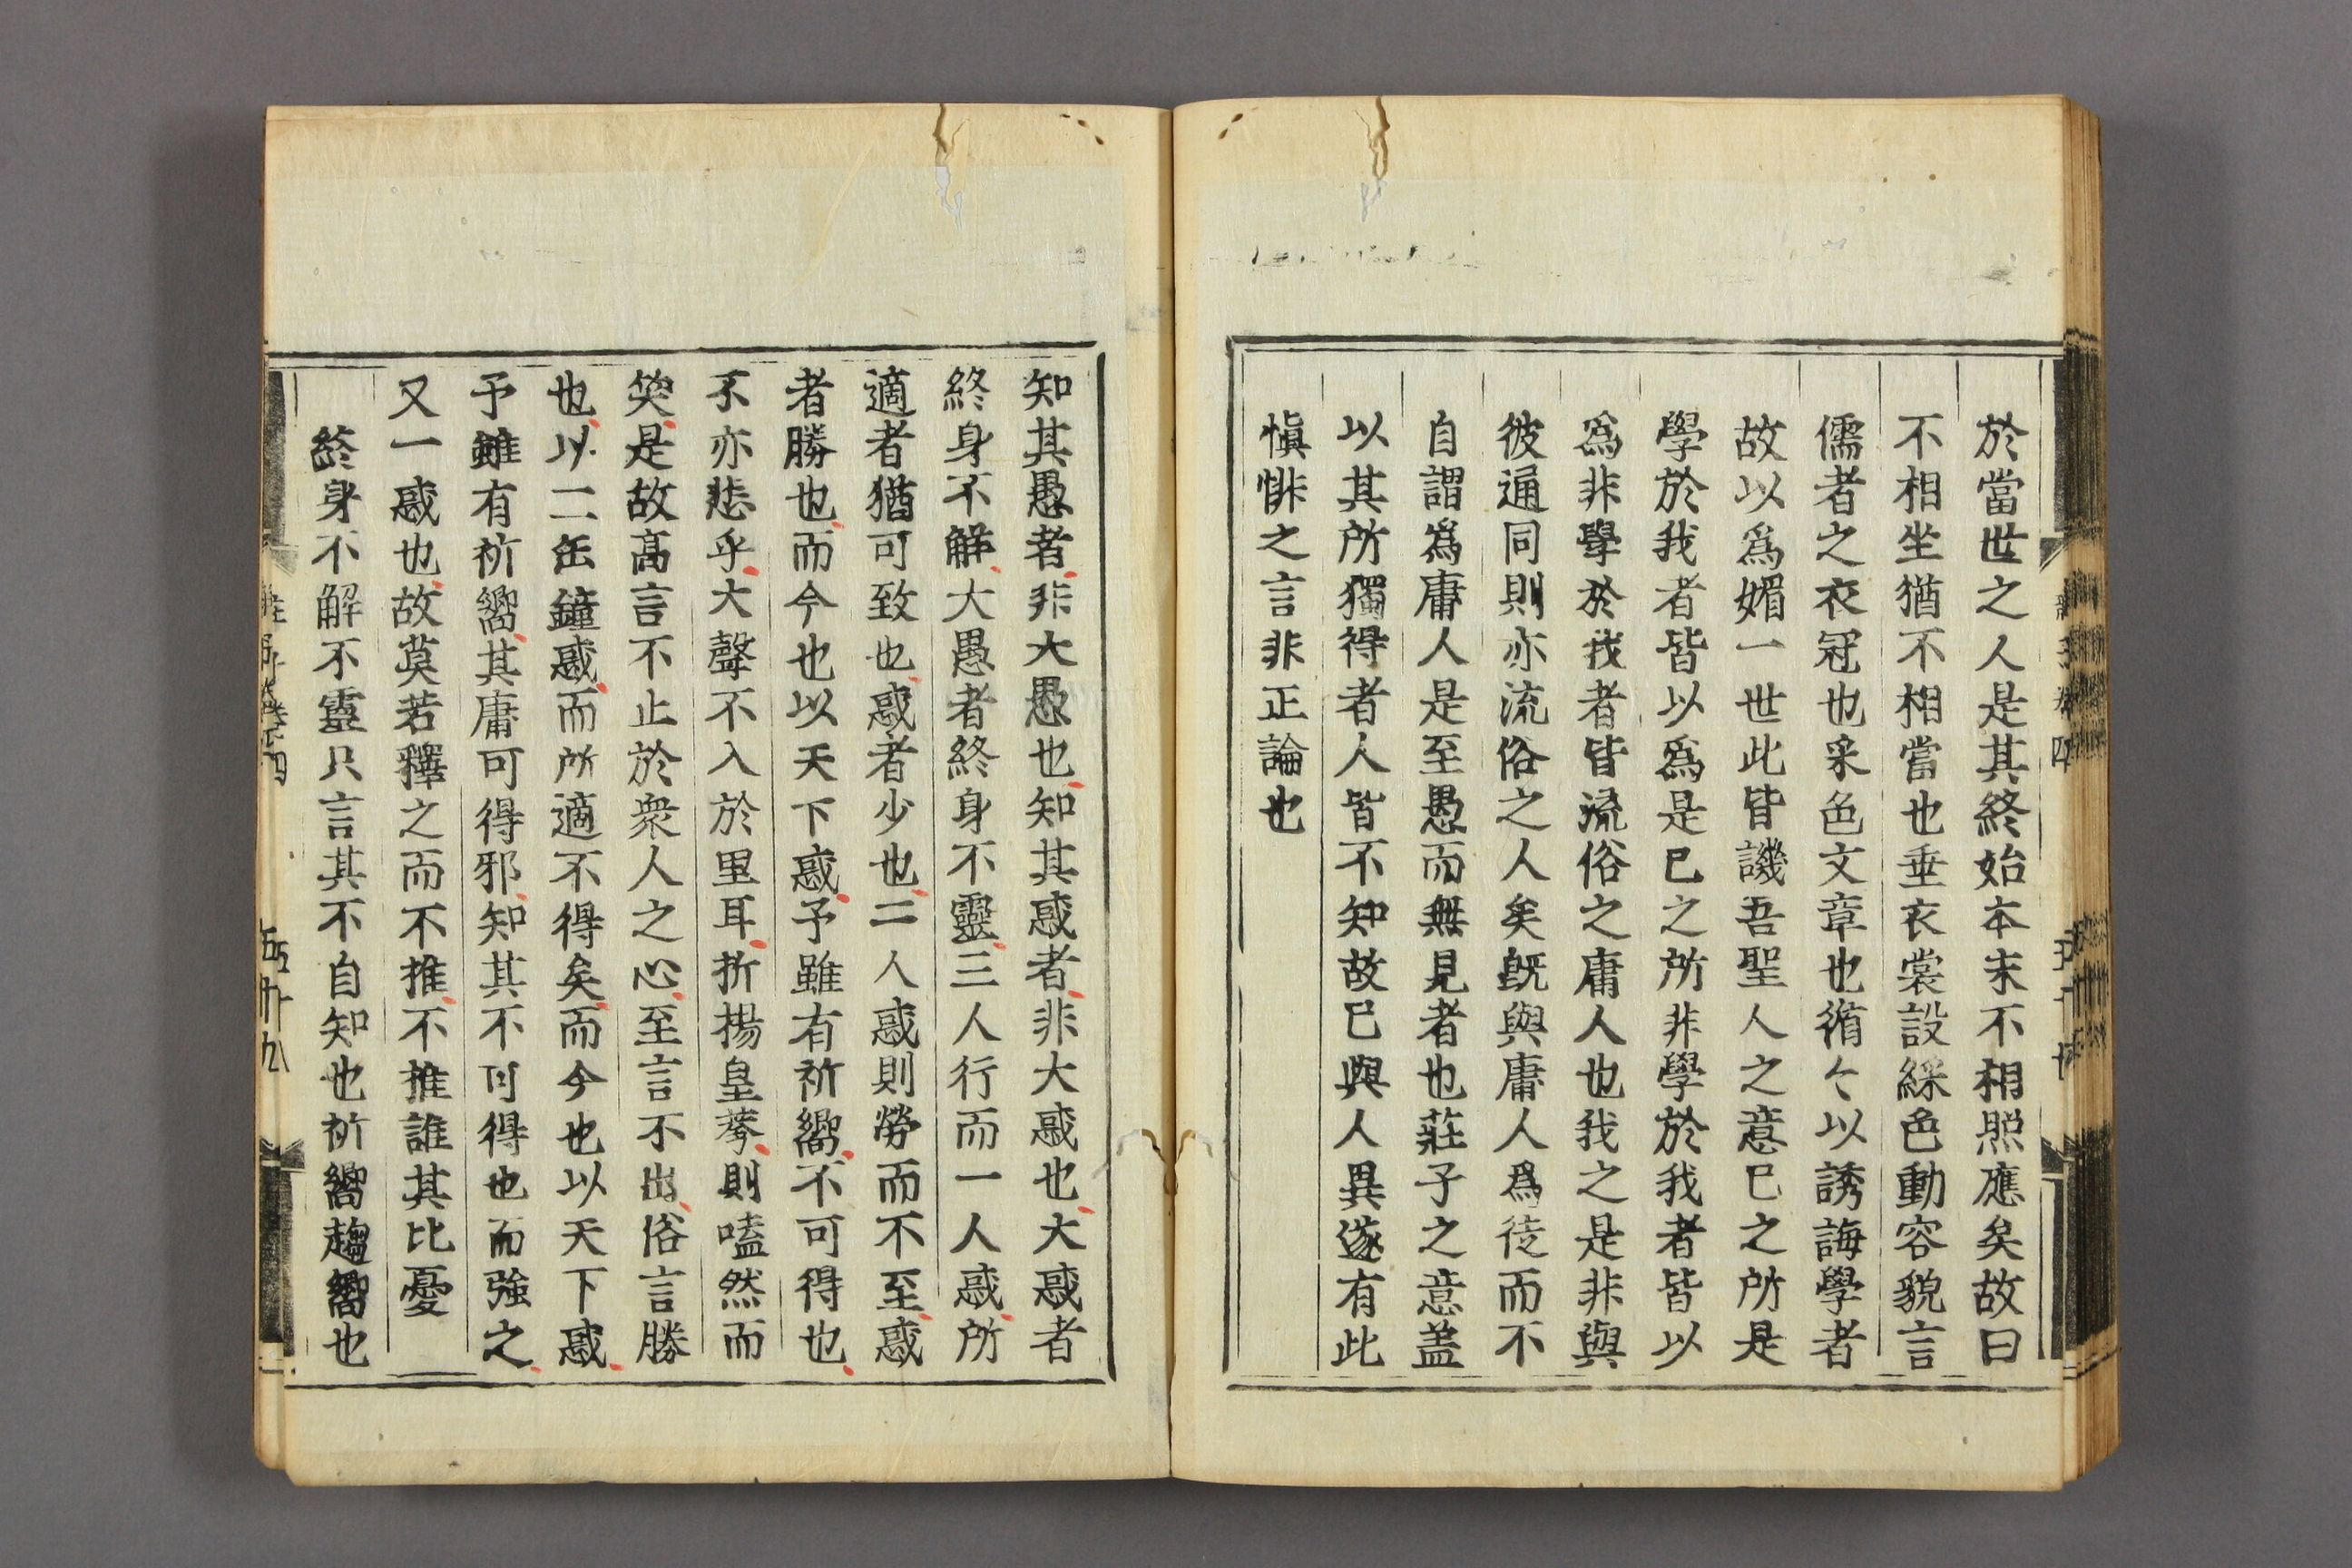 於當世之人是其終始本末不相照應矣故曰
不相坐猶不相當也垂衣裳設綵色動容貌言
儒者之衣冠也采色文章也循〻以誘誨學者
故以爲媚一世此皆譏吾聖人之意已之所是
學於我者皆以爲是已之所非學於我者皆以
爲非學於我者皆流俗之庸人也我之是非與
彼通同則亦流俗之人矣旣與庸人爲徒而不
自謂爲庸人是至愚而無見者也莊子之意盖
以其所獨得者人皆不知故已與人異遂有此
愼悱之言非正論也
知其愚者非大愚也知其惑者非大惑也大惑者
終身不解大愚者終身不靈三人行而一人惑所
適者猶可致也惑者少也二人惑則勞而不至惑
者勝也而今也以天下惑予雖有祈嚮不可得也
不亦悲乎大聲不入於里耳折揚皇荂則嗑然而
笑是故高言不止於衆人之心至言不出俗言勝
也以二缶鐘惑而所適不得矣而今也以天下惑
予雖有祈嚮其庸可得邪知其不可得也而強之
又一惑也故莫若釋之而不推不推誰其比憂
終身不解不靈只言其不自知也祈嚮趨嚮也